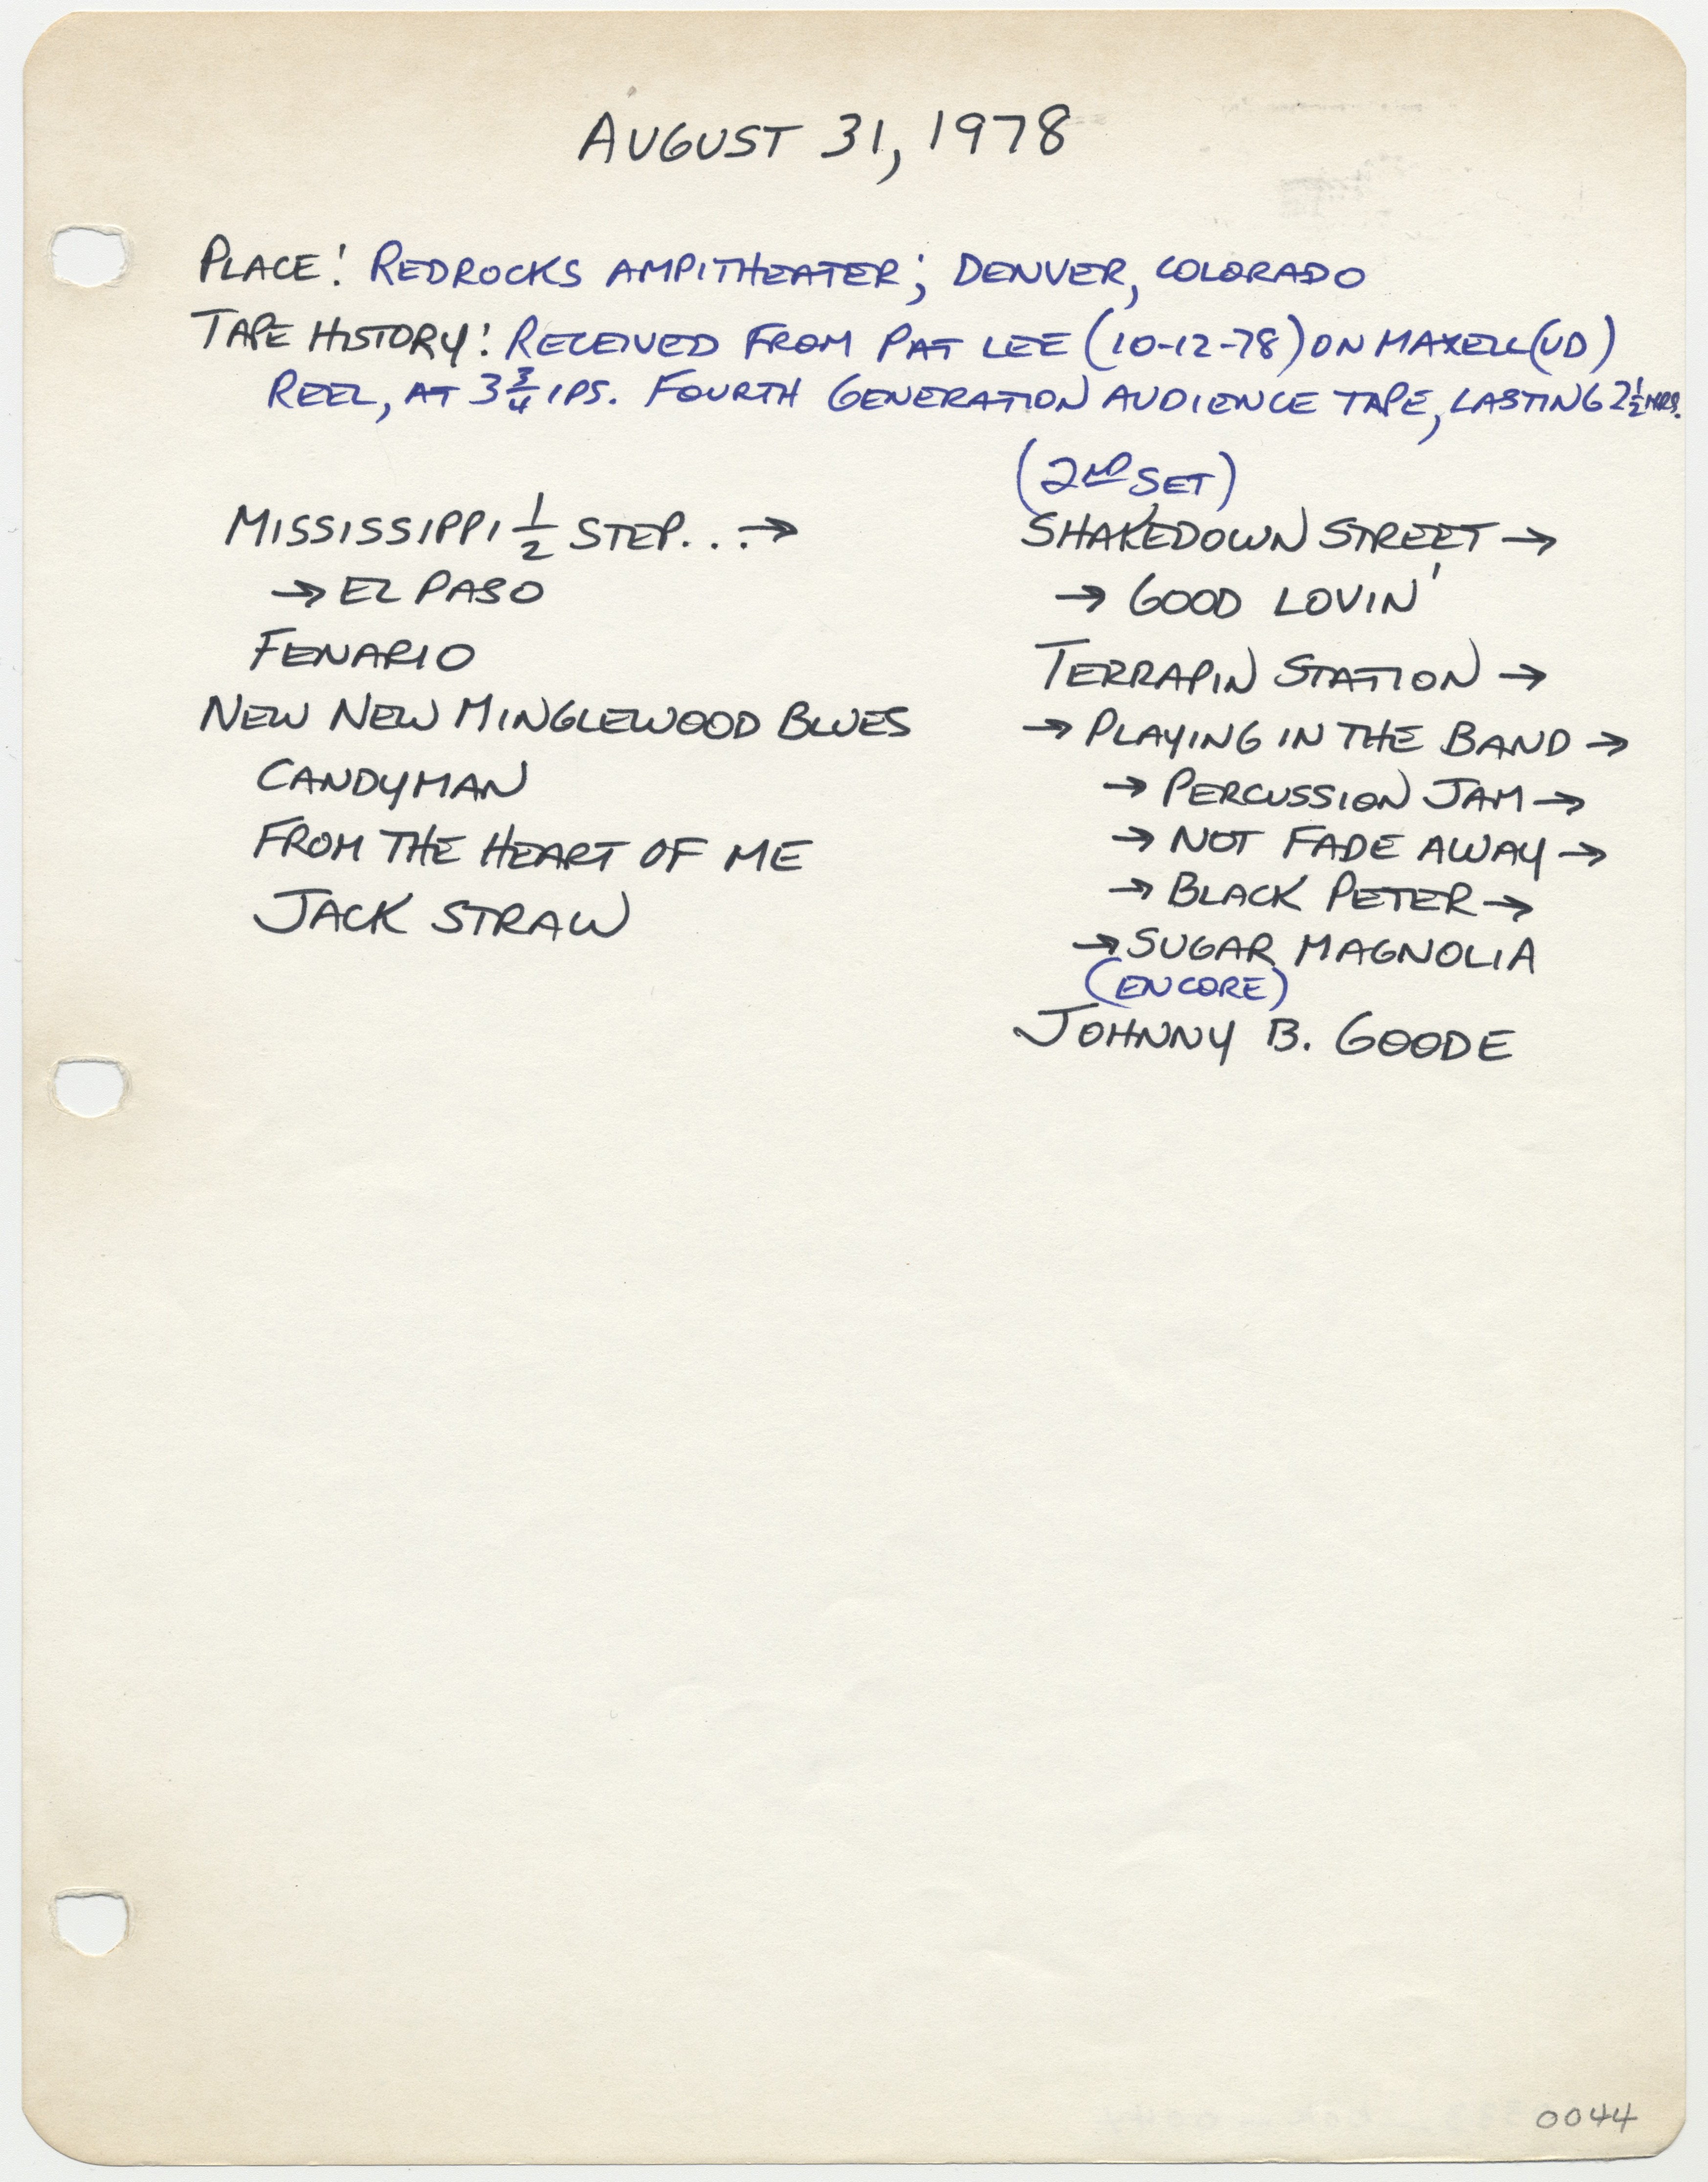 AUGUST 31, 1978
PLACE: REDROCKS AMPITHEATER; DENVER, COLORADO
TAPE HISTORY: RECEIVED FROM PAT LEE (10-12-78) ON MAXELL (UD)
REEL, AT 3 3/4 IPS. FOURTH GENERATION AUDIENCE TAPE, LASTING 2 1/2 HRS.
MISSISSIPPI 1/2 STEP...→
→ EL PASO
FENARIO
NEW NEW MINGLEWOOD BLUES
CANDYMAN
FROM THE HEART OF ME
JACK STRAW
(2ND SET)
SHAKEDOWN STREET →
→ GOOD LOVIN'
TERRAPIN STATION →
→ PLAYING IN THE BAND →
→ PERCUSSION JAM →
→ NOT FADE AWAY →
→ BLACK PETER →
→ SUGAR MAGNOLIA
(ENCORE)
JOHNNY B. GOODE
0044